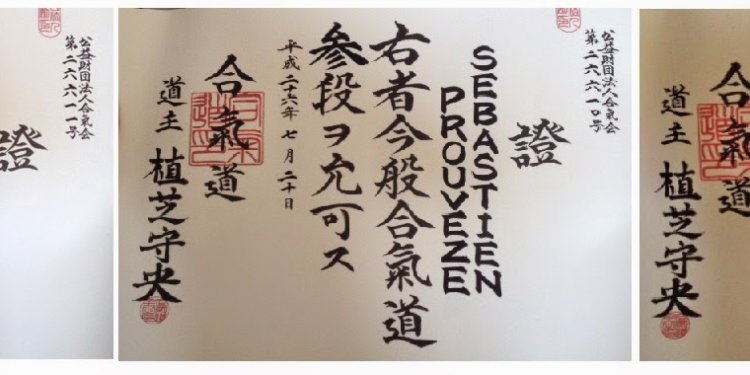 公益財団法人合気会
第二六六一一号
證
公益財団法人合気会
第二六六一〇号
證
SEBASTIEN
PROUVEZE
右者今般合氣道
参段ヲ允可ス
平成二十六年七月二十日
合氣道
道主 植芝守央
合氣道
道主 植芝守央